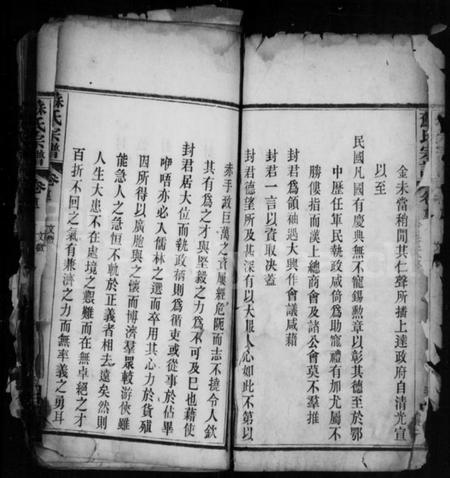 金未當稍閒其仁聲所播上達政府自清光宣
以至
民國凡國有慶典無不寵錫勲章以彰其德至於鄂
中歷任軍民執政咸倚為助寵禮有加尤屬不
勝僂指而漢上總商會及諸公會莫不羣推
封君為領袖遇大興作會議咸藉
封君一言以資取决蓋
封君德望所及其深有以大服人心如此不第以
赤手致巨萬之資屢經危躓而志不撓令人欽
其有為之才與堅毅之力為不可及巳也藉使
封君居大位而執政柄則為循吏或從事於佔畢
咿唔亦必入儒林之選而卒用其心力於貨殖
因所得以廣胞與之懷而博濟羣眾較游俠雖
能急人之急恒不軌於正義者相去遠矣然則
人生大患不在處境之艱難而在無卓絕之才
百折不回之氣有兼濟之力而無率義之勇耳
蘇氏宗譜
卷首
蘇氏宗譜
卷首